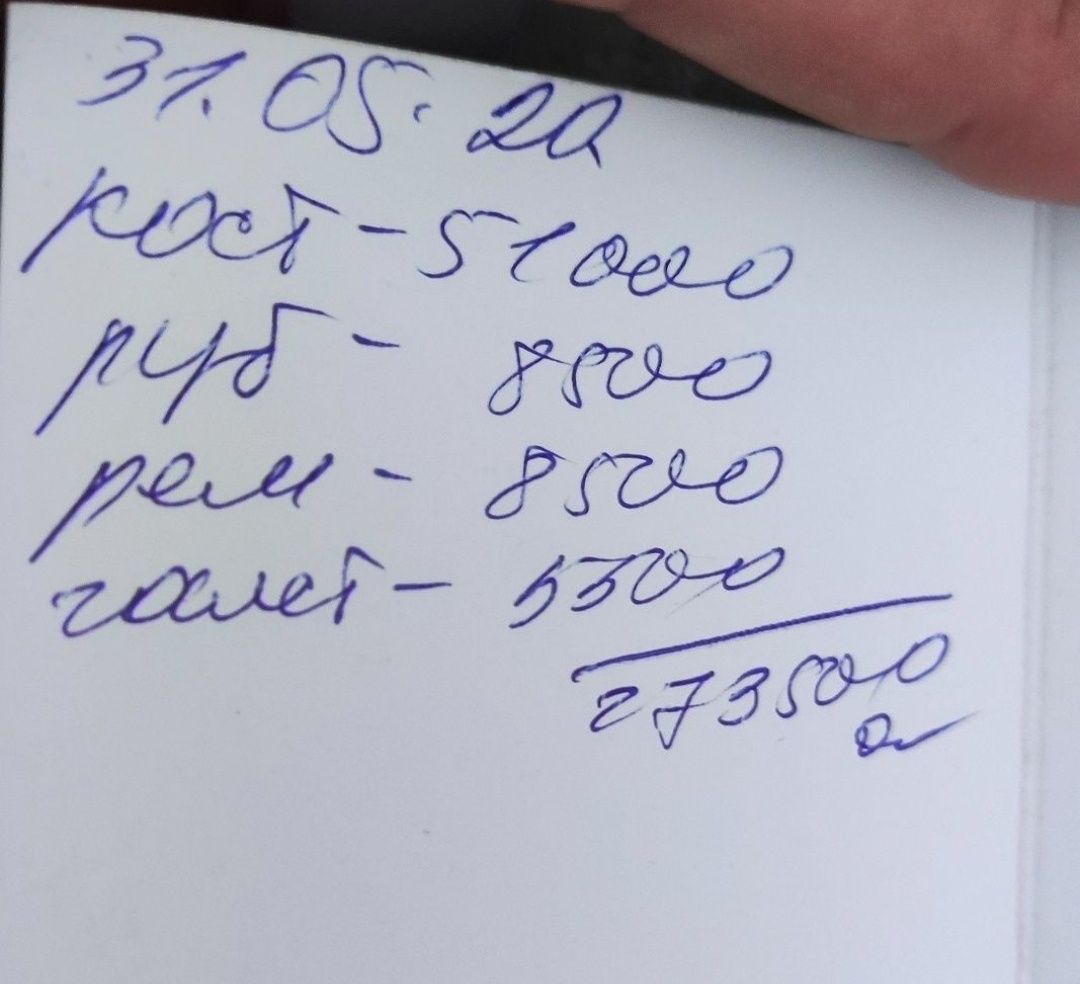 31.05.20
кост - 51000
руб - 8500
рем - 8500
галст - 5500
=73500